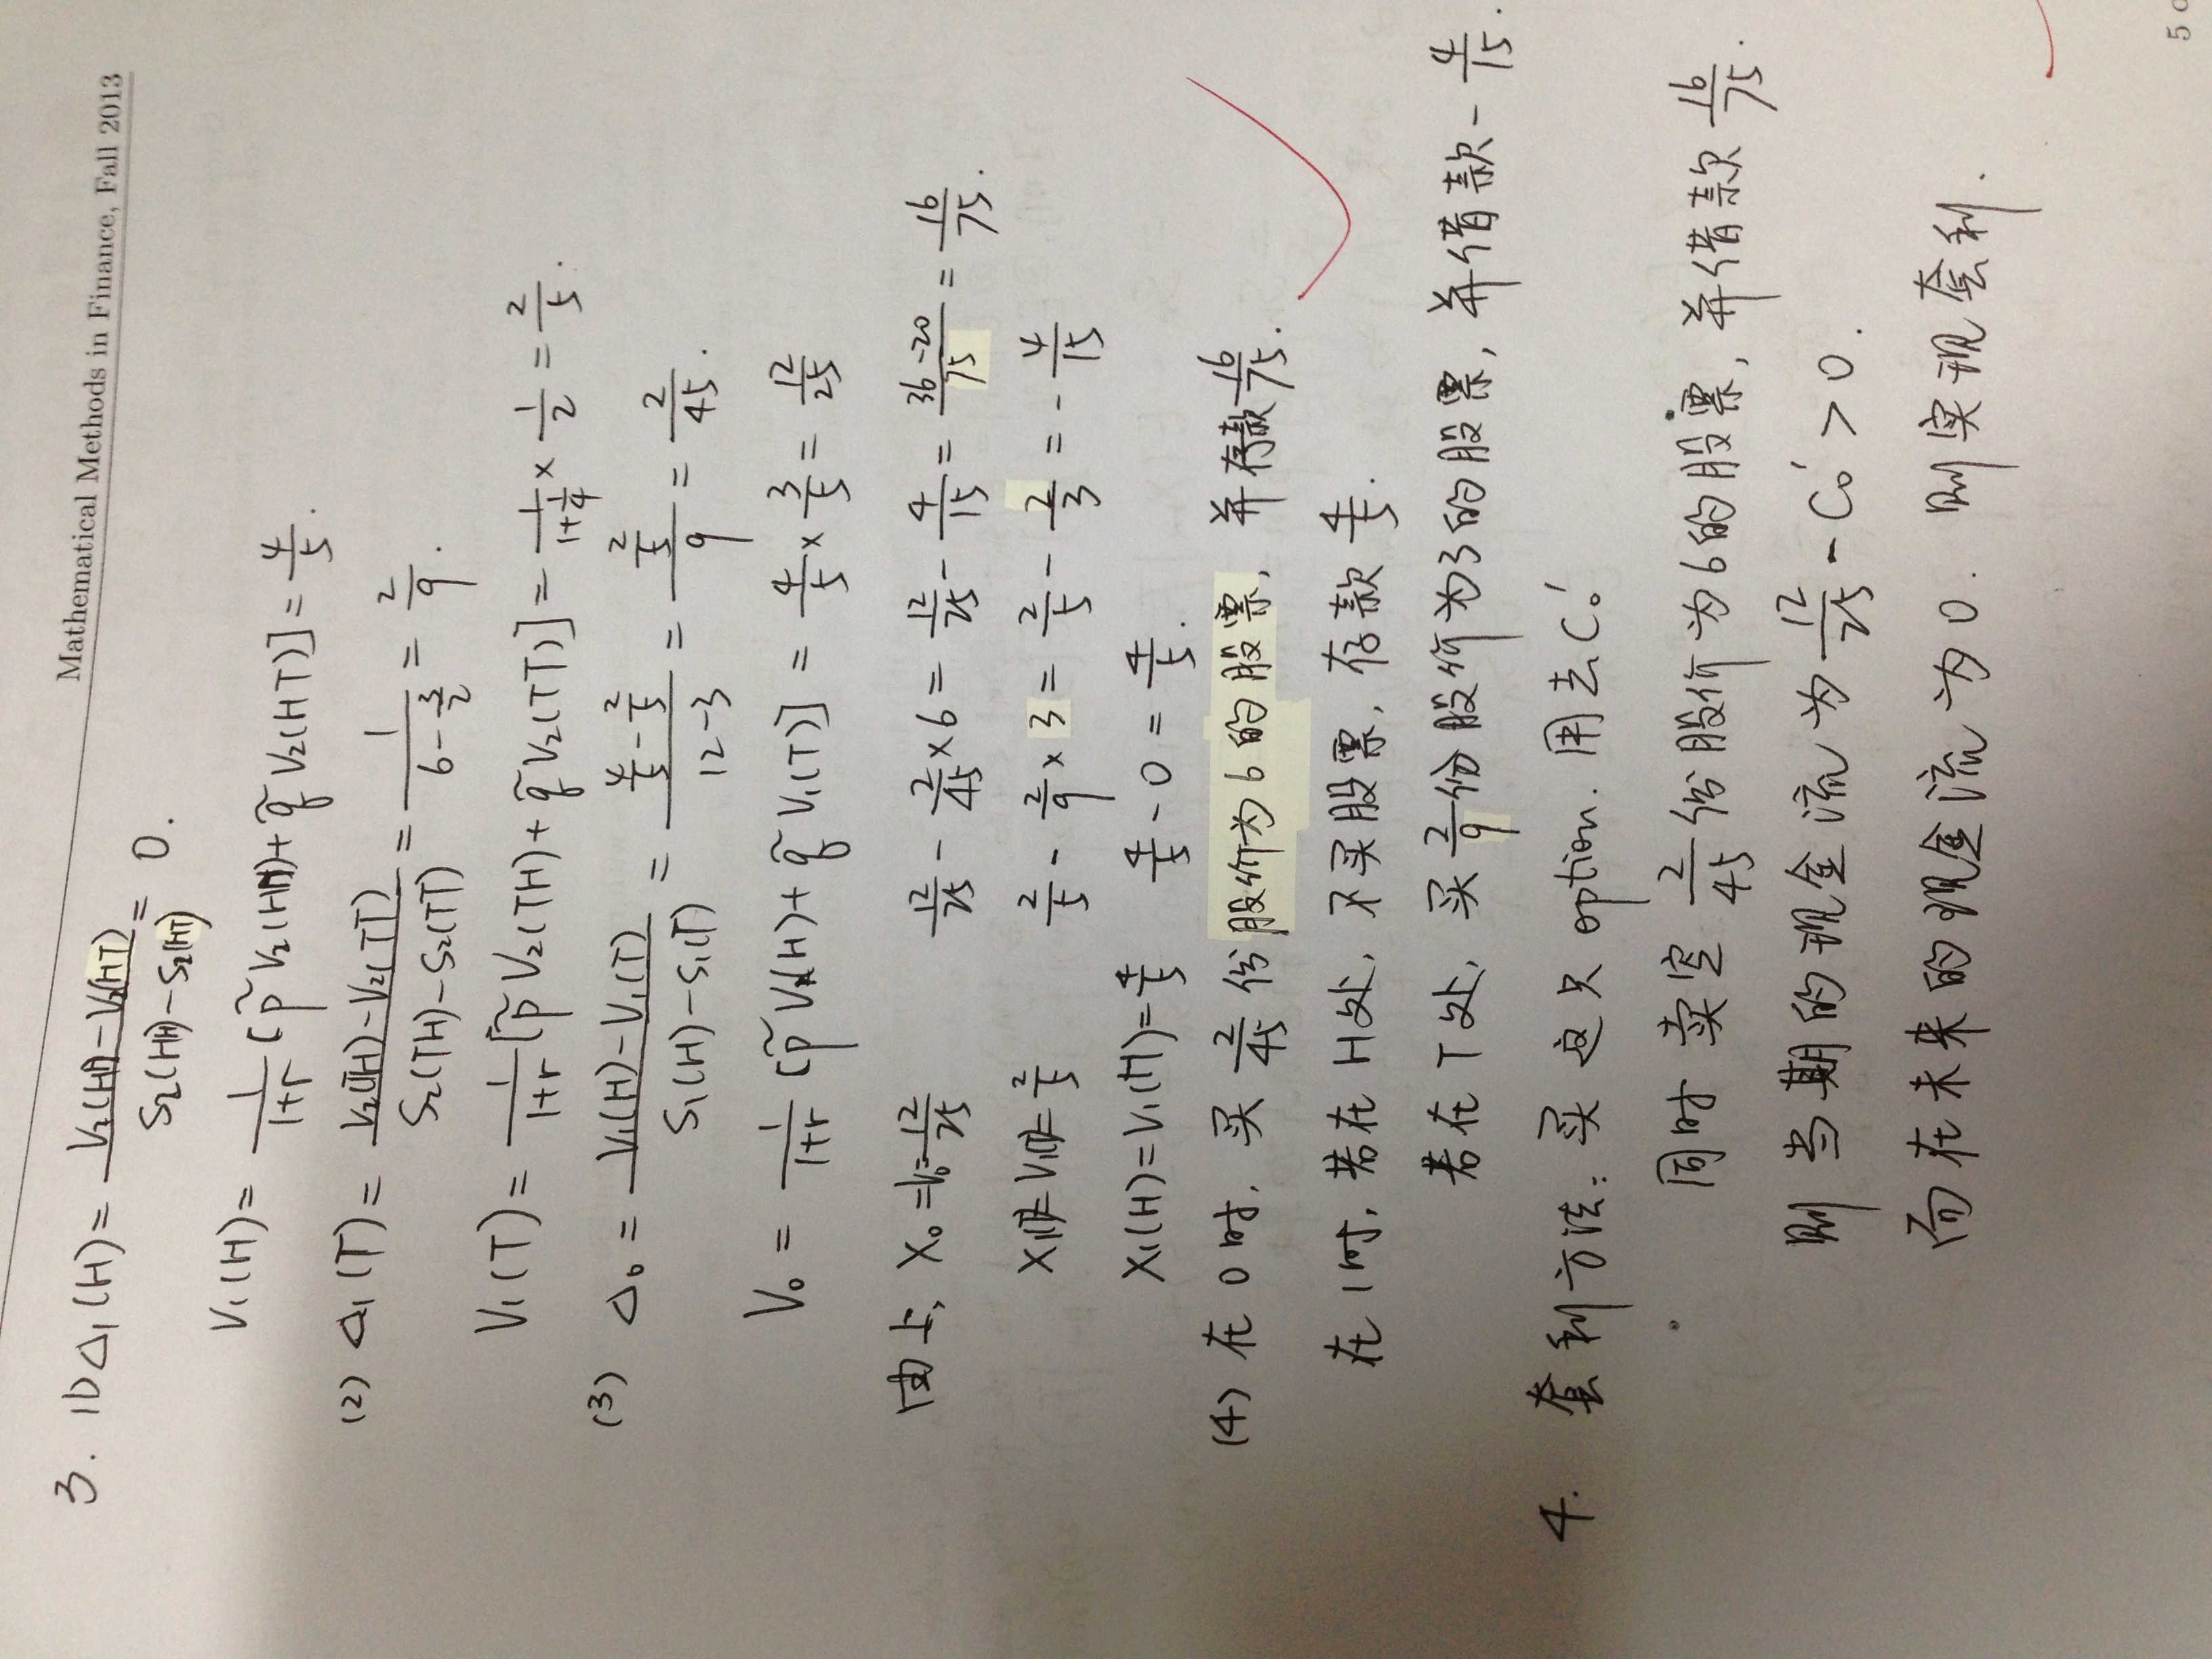 Mathematical Methods in Finance, Fall 2013
3. (1) Δ₁(H) = (V₂(HH) − V₂(HT)) / (S₂(HH) − S₂(HT)) = 0.
V₁(H) = 1/(1+r) [p̃ V₂(HH) + q̃ V₂(HT)] = 4/5.
(2) Δ₁(T) = (V₂(TH) − V₂(TT)) / (S₂(TH) − S₂(TT)) = 1/(6 − 3/2) = 2/9.
V₁(T) = 1/(1+r) [p̃ V₂(TH) + q̃ V₂(TT)] = 1/(1+1/4) × 1/2 = 2/5.
(3) Δ₀ = (V₁(H) − V₁(T)) / (S₁(H) − S₁(T)) = (4/5 − 2/5)/(12−3) = (2/5)/9 = 2/45.
V₀ = 1/(1+r) [p̃ V₁(H) + q̃ V₁(T)] = 4/5 × 3/5 = 12/25
由上, X₀ = V₀ = 12/25 12/25 − 2/45 × 6 = 12/25 − 4/15 = (36−20)/75 = 16/75.
X₁(T) = V₁(T) = 2/5 2/5 − 2/9 × 3 = 2/5 − 2/3 = − 4/15
X₁(H) = V₁(H) = 4/5 4/5 − 0 = 4/5.
(4) 在0时, 买 2/45 份股价为6的股票, 并存款 16/75.
在1时, 若在H处, 不买股票, 存款 4/5.
若在T处, 买 2/9 份股价为3的股票, 并借款 − 4/15.
4. 套利方法: 买这只option. 用去C₀′
同时卖空 2/45 份股价为6的股票, 并借款 16/75.
则当期的现金流为 12/25 − C₀′ > 0.
而在未来的现金流为0. 则实现套利.
5 o